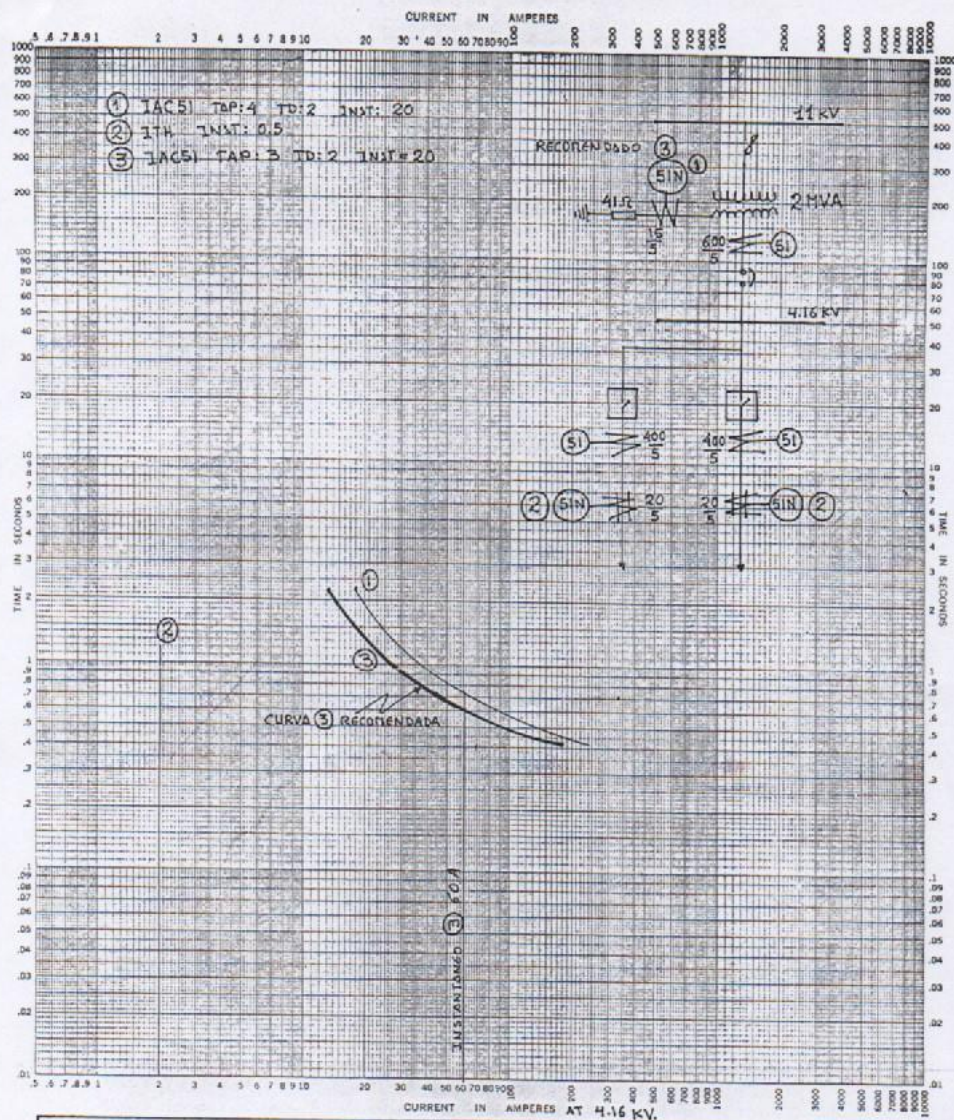 CURRENT IN AMPERES
.5 .6 .7 .8 .9 1 2 3 4 5 6 7 8 9 10 20 30 40 50 60 70 80 90 100 200 300 400 500 600 700 800 900 1000 2000 3000 4000 5000 6000 7000 8000 9000 10000
1000
900
800
700
600
500
400
300
200
100
90
80
70
60
50
40
30
20
10
9
8
7
6
5
4
3
2
1
.9
.8
.7
.6
.5
.4
.3
.2
.1
.09
.08
.07
.06
.05
.04
.03
.02
.01
TIME IN SECONDS
① IAC51 TAP:4 TD:2 INST: 20
② ITH INST: 0.5
③ IAC51 TAP: 3 TD:2 INST=20
11 KV
RECOMENDADO ③
51N ①
41Ω
15/5
2 MVA
600/5
51
4.16 KV
51 400/5
400/5 51
② 51N 20/5
20/5 51N ②
①
②
③
CURVA ③ RECOMENDADA
INSTANTANEO ③ 60A
1000
900
800
700
600
500
400
300
200
100
90
80
70
60
50
40
30
20
10
9
8
7
6
5
4
3
2
1
.9
.8
.7
.6
.5
.4
.3
.2
.1
.09
.08
.07
.06
.05
.04
.03
.02
.01
TIME IN SECONDS
.5 .6 .7 .8 .9 1 2 3 4 5 6 7 8 9 10 20 30 40 50 60 70 80 90 100 200 300 400 500 600 700 800 900 1000 2000 3000 4000 5000 6000 7000 8000 9000 10000
CURRENT IN AMPERES AT 4.16 KV.